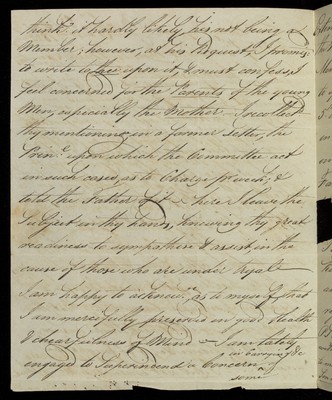 think it hardly likely, his not being a
Member; however, at his Request, I promisd
to write to thee upon it, & must confess, I
feel concernd for the Parents of the young
Men, especially the Mother. I recollect
thy mentioning in a former Letter, the
Prin. upon which the Committee act
in such cases, as to Charge
told the Father it I leave the
Subject in thy hands, knowing thy great
readiness to sympathise & assist, in the
cause of those who are under tryal
I am happy to acknow. as to myself that
I am mercifully preserved in good Health
& chearfulness of Mind I am lately
in carrying &c
engaged to Superintend a Concern of
some